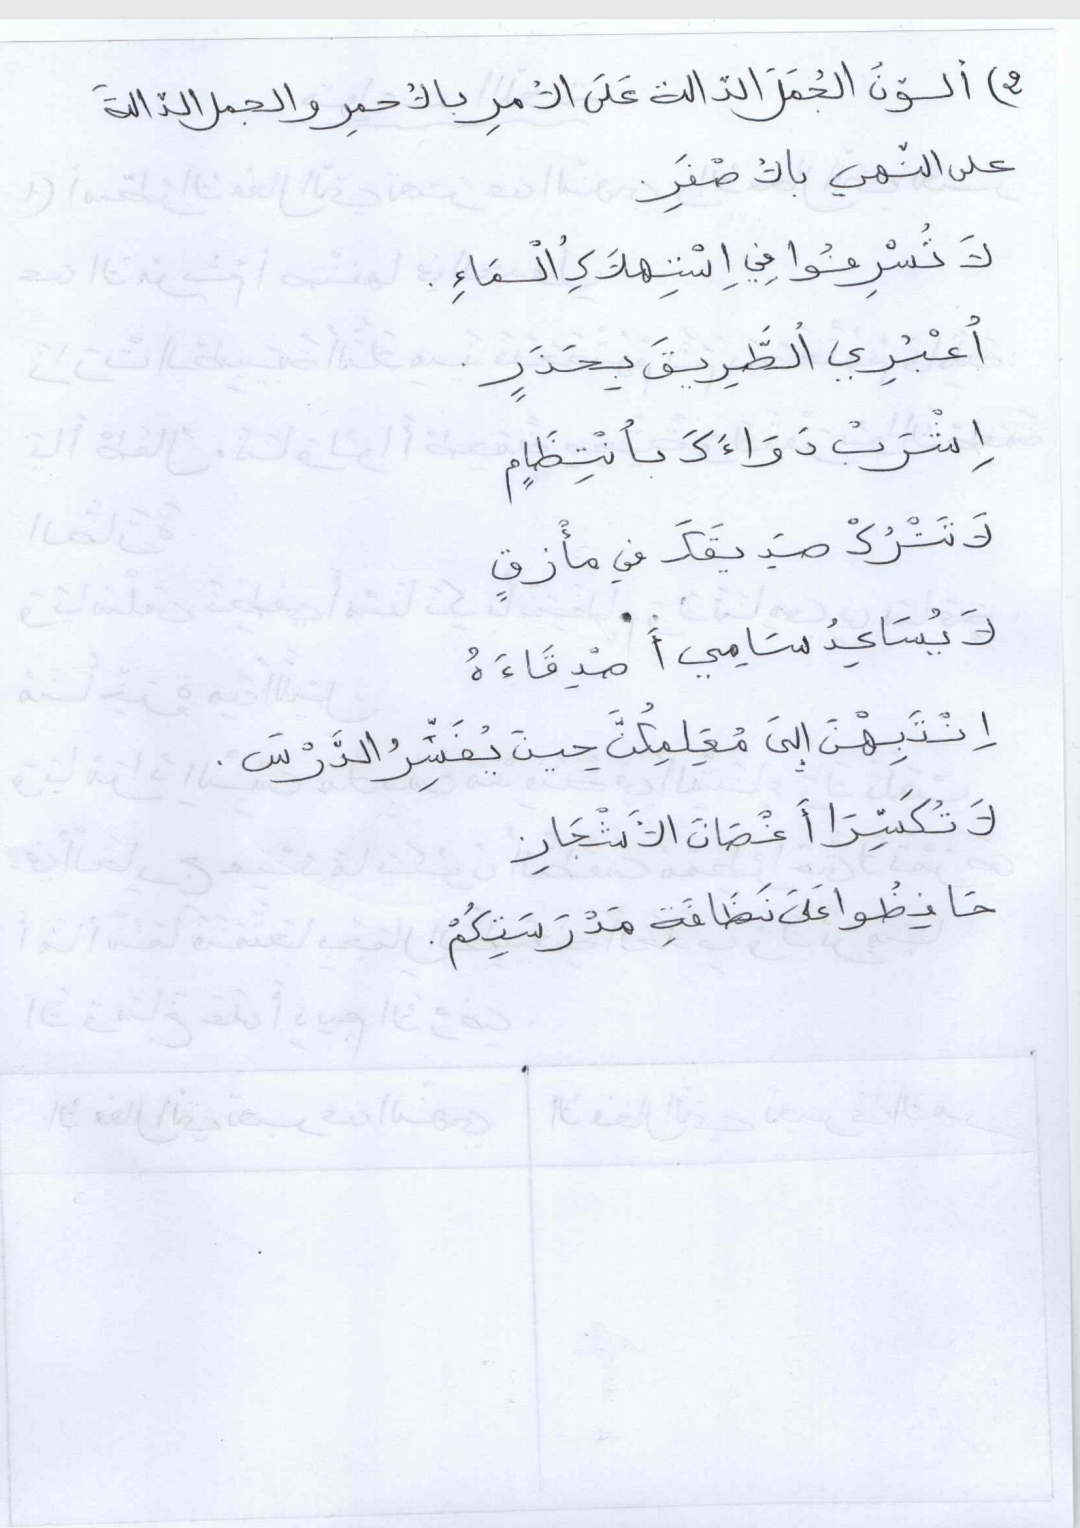 2) أُلوّنُ الجُمَلَ الدّالة عَلَى الأمرِ بالأحمرِ والجمل الدّالةَ
على النّهيِ بالأصْفَرِ.
لَا تُسْرِفُوا فِي اِسْتِهْلَاكِ اُلْمَاءِ.
اُعْبُرِي اُلطَّرِيقَ بِحَذَرٍ.
اِشْرَبْ دَوَاءَكَ بانْتِظَامٍ
لَا تَتْرُكْ صَدِيقَكَ في مأْزقٍ
لَا يُسَاعِدُ سَامِي أَصْدِقَاءَهُ
اِنْتَبِهْنَ إِلىَ مُعَلِمِكُنَّ حِينَ يُفَسِّرُ الدَّرْسَ.
لَا تُكَسِّرَا أَغْصَانَ الأَشْجَارِ
حَافِظُوا عَلَى نَظَافَةِ مَدْرَسَتِكُمْ.